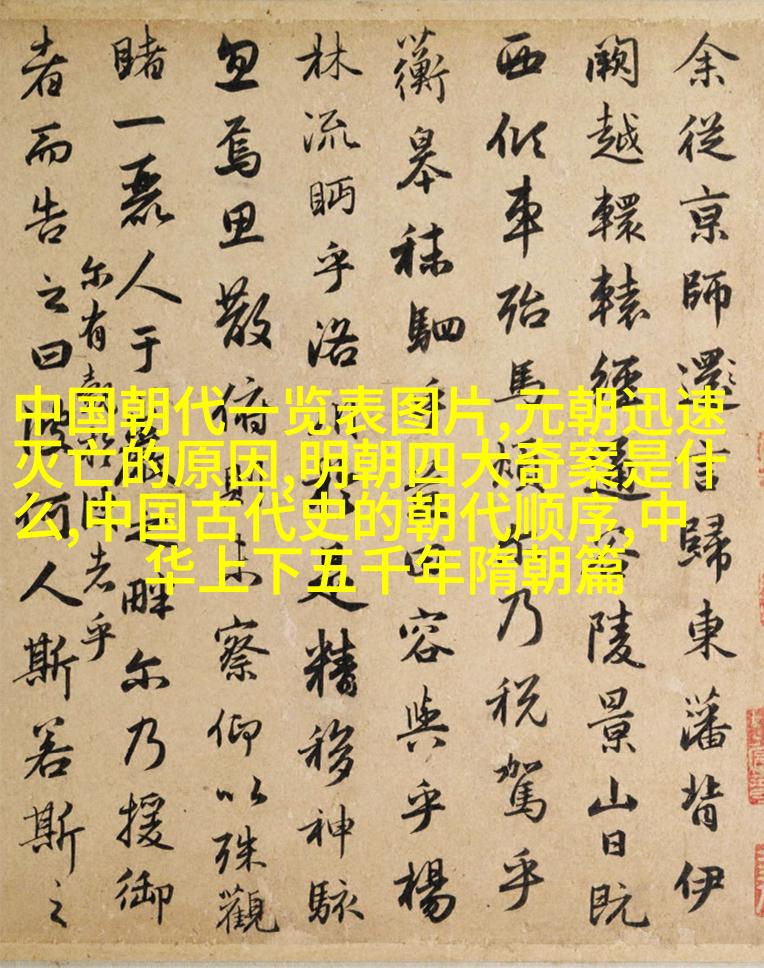 余從京師還言歸東藩背伊
闕越轘轅經通谷陵景山日既
西傾車殆馬煩尔乃税駕乎
蘅皋秣駟乎芝田容與乎楊
林流眄乎洛川於是精移神駭
忽焉思散俯則未察仰以殊觀
睹一麗人于巖之畔尔乃援御
尔有覿於彼者乎
者而告之曰彼何人斯若斯之
中国朝代一览表图片,元朝迅速
灭亡的原因,明朝四大奇案是什
么,中国古代史的朝代顺序,中
华上下五千年隋朝篇